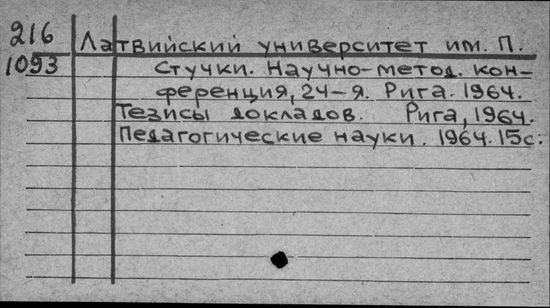 216
Латвийский университет им. П.
1093
Стучки. Научно-метод. кон-
ференция, 24-я. Рига. 1964.
Тезисы докладов. Рига, 1964.
Педагогические науки. 1964. 15с.